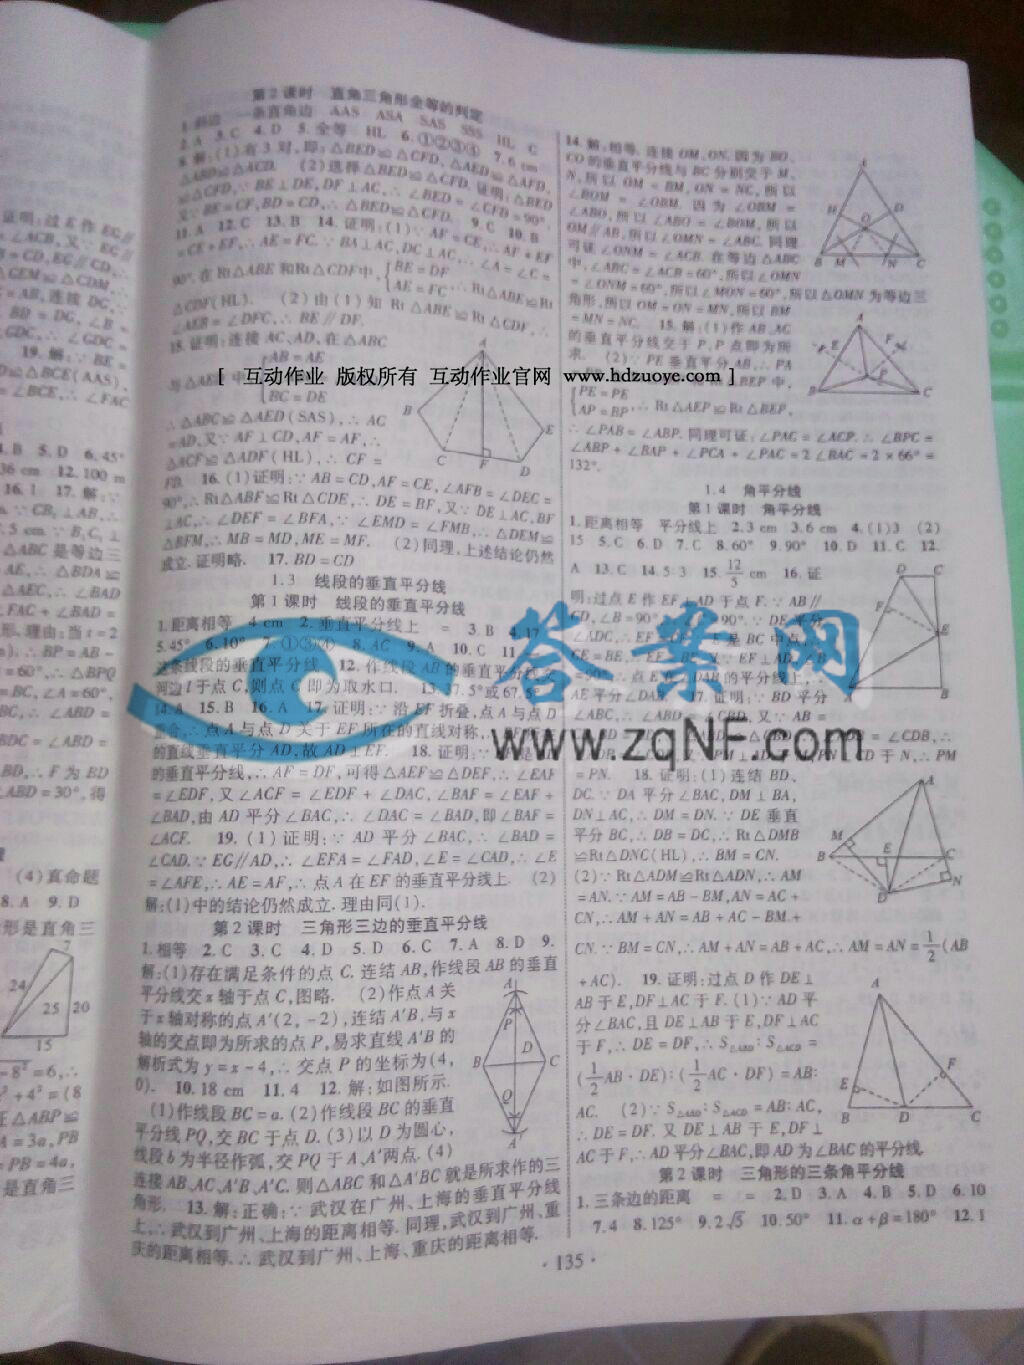 第2课时 直角三角形全等的判定
1.斜边 一条直角边 AAS ASA SAS SSS HL C
2.A 3.C 4.D 5.全等 HL 6.①②③④ 7.6 cm
8.解:(1)有3对,即:△BED≌△CFD,△AED≌△AFD,
△ABD≌△ACD. (2)选择△BED≌△CFD.证明:△BED
≌△CFD,∵BE⊥DE,DF⊥AC,∴∠BED=∠CFD=90°.
又∵BE=CF,BD=CD,∴△BED≌△CFD. 9.C 10.B
11.A 12.C 13.B 14.证明:(1)∵AF=CE,∴AF+EF
=CE+EF,∴AE=FC.∵BA⊥AC,DC⊥AC,∴∠A=∠C=
90°.在Rt△ABE和Rt△CDF中,{BE=DF
AE=FC,∴Rt△ABE≌Rt
△CDF(HL). (2)由(1)知 Rt△ABE≌Rt△CDF,∴
∠AEB=∠DFC,∴BE∥DF.
15.证明:连接AC、AD,在△ABC
AB=AE
与△AED中
BC=DE
∴△ABC≌△AED(SAS),∴AC
=AD,又∵AF⊥CD,AF=AF,∴
△ACF≌△ADF(HL),∴CF=
FD. 16.(1)证明:∵AB=CD,AF=CE,∠AFB=∠DEC=
90°,∴Rt△ABF≌Rt△CDE,∴DE=BF,又∵DE⊥AC,BF
⊥AC,∴∠DEF=∠BFA,∵∠EMD=∠FMB,∴△DEM≌
△BFM,∴MB=MD,ME=MF. (2)同理,上述结论仍然
成立.证明略. 17.BD=CD
1.3 线段的垂直平分线
第1课时 线段的垂直平分线
1.距离相等 4 cm 2.垂直平分线上 = 3.B 4.17
5.45° 6.10° 7.①③④ 8.AC 9.A 10.C 11.
这条线段的垂直平分线 12.作线段AB的垂直平分线交
河边l于点C,则点C即为取水口. 13.37.5°或67.5°
14.A 15.B 16.A 17.证明:∵沿EF折叠,点A与点D
重合,∴点A与点D关于EF所在的直线对称,
的直线垂直平分AD,故AD⊥EF. 18.证明:
的垂直平分线,∴AF=DF,可得△AEF≌△DEF,∴∠EAF
=∠EDF,又∠ACF=∠EDF+∠DAC,∠BAF=∠EAF+
∠BAD,由AD平分∠BAC,∴∠DAC=∠BAD,即∠BAF=
∠ACF. 19.(1)证明:∵AD平分∠BAC,∴∠BAD=
∠CAD.∵EG∥AD,∴∠EFA=∠FAD,∠E=∠CAD,∴∠E
=∠AFE,∴AE=AF,∴点A在EF的垂直平分线上. (2)
解:(1)中的结论仍然成立.理由同(1).
第2课时 三角形三边的垂直平分线
1.相等 2.C 3.C 4.D 5.D 6.C 7.A 8.D 9.
解:(1)存在满足条件的点C.连结AB,作线段AB的垂直
平分线交x轴于点C,图略. (2)作点A关
于x轴对称的点A′(2,-2),连结A′B,与x
轴的交点即为所求的点P,易求直线A′B的
解析式为y=x-4,∴交点P的坐标为(4,
0). 10.18 cm 11.4 12.解:如图所示.
(1)作线段BC=a.(2)作线段BC的垂直
平分线PQ,交BC于点D.(3)以D为圆心,
线段b为半径作弧,交PQ于A、A′两点.(4)
连接AB、AC、A′B、A′C.则△ABC和△A′BC就是所求作的三
角形. 13.解:正确:∵武汉在广州、上海的垂直平分线
上,∴武汉到广州、上海的距离相等.同理,武汉到广州、重
庆的距离相等.∴武汉到广州、上海、重庆的距离相等.
14.解:相等.连接OM、ON.因为BO、
CO的垂直平分线与BC分别交于M、
N,所以OM=BM,ON=NC,所以
∠BOM=∠OBM.因为∠OBM=
∠ABO,所以∠ABO=∠BOM,所以
OM∥AB,所以∠OMN=∠ABC.同理
可证∠ONM=∠ACB.在等边△ABC
中,∠ABC=∠ACB=60°,所以∠OMN
=∠ONM=60°,所以∠MON=60°,所以△OMN为等边三
角形,所以OM=ON=MN,所以BM
=MN=NC. 15.解:(1)作AB、AC
的垂直平分线交于P,P点即为所
求. (2)∵PE垂直平分AB,∴PA
BEP中,
{PE=PE
AP=BP,∴Rt△AEP≌Rt△BEP,
∴∠PAB=∠ABP.同理可证:∠PAC=∠ACP.∴∠BPC=
∠ABP+∠BAP+∠PCA+∠PAC=2∠BAC=2×66°=
132°.
1.4 角平分线
第1课时 角平分线
1.距离相等 平分线上 2.3 cm 3.6 cm 4.(1)3 (2)
15 5.C 6.D 7.C 8.60° 9.90° 10.D 11.C 12.
A 13.C 14.5:3 15.12/5 cm 16.证
明:过点E作EF⊥AD于点F.∵AB∥
CD,∠B=90°, DE平分
∠ADC,∴EF= 是BC中点,∴
CE=BE,
=90°,∴点E在∠DAB的平分线上,∴
AE平分∠DAB. 17.证明:∵BD平分
∠ABC,∴∠ABD=∠CBD,又∵AB=
∠CDB,∴
CD于N,∴PM
=PN. 18.证明:(1)连结BD、
DC.∵DA平分∠BAC,DM⊥BA,
DN⊥AC,∴DM=DN.∵DE垂直
平分BC,∴DB=DC,∴Rt△DMB
≌Rt△DNC(HL),∴BM=CN.
(2)∵Rt△ADM≌Rt△ADN,∴AM
=AN.∵AM=AB-BM,AN=AC+
CN,∴AM+AN=AB+AC-BM+
CN.∵BM=CN,∴AM+AN=AB+AC,∴AM=AN=1/2(AB
+AC). 19.证明:过点D作DE⊥
AB于E,DF⊥AC于F.(1)∵AD平
分∠BAC,且DE⊥AB于E,DF⊥AC
于F,∴DE=DF,∴S△ABD:S△ACD=
(1/2AB·DE):(1/2AC·DF)=AB:
AC. (2)∵S△ABD:S△ACD=AB:AC,
∴DE=DF.又DE⊥AB于E,DF⊥
AC于F,∴AD平分∠BAC,即AD为∠BAC的平分线.
第2课时 三角形的三条角平分线
1.三条边的距离 = = 2.D 3.A 4.B 5.D 6.10
7.4 8.125° 9.2√5 10.50° 11.α+β=180° 12.1
·135·
[ 互动作业 版权所有 互动作业官网 www.hdzuoye.com ]
答案网
www.zqNF.com